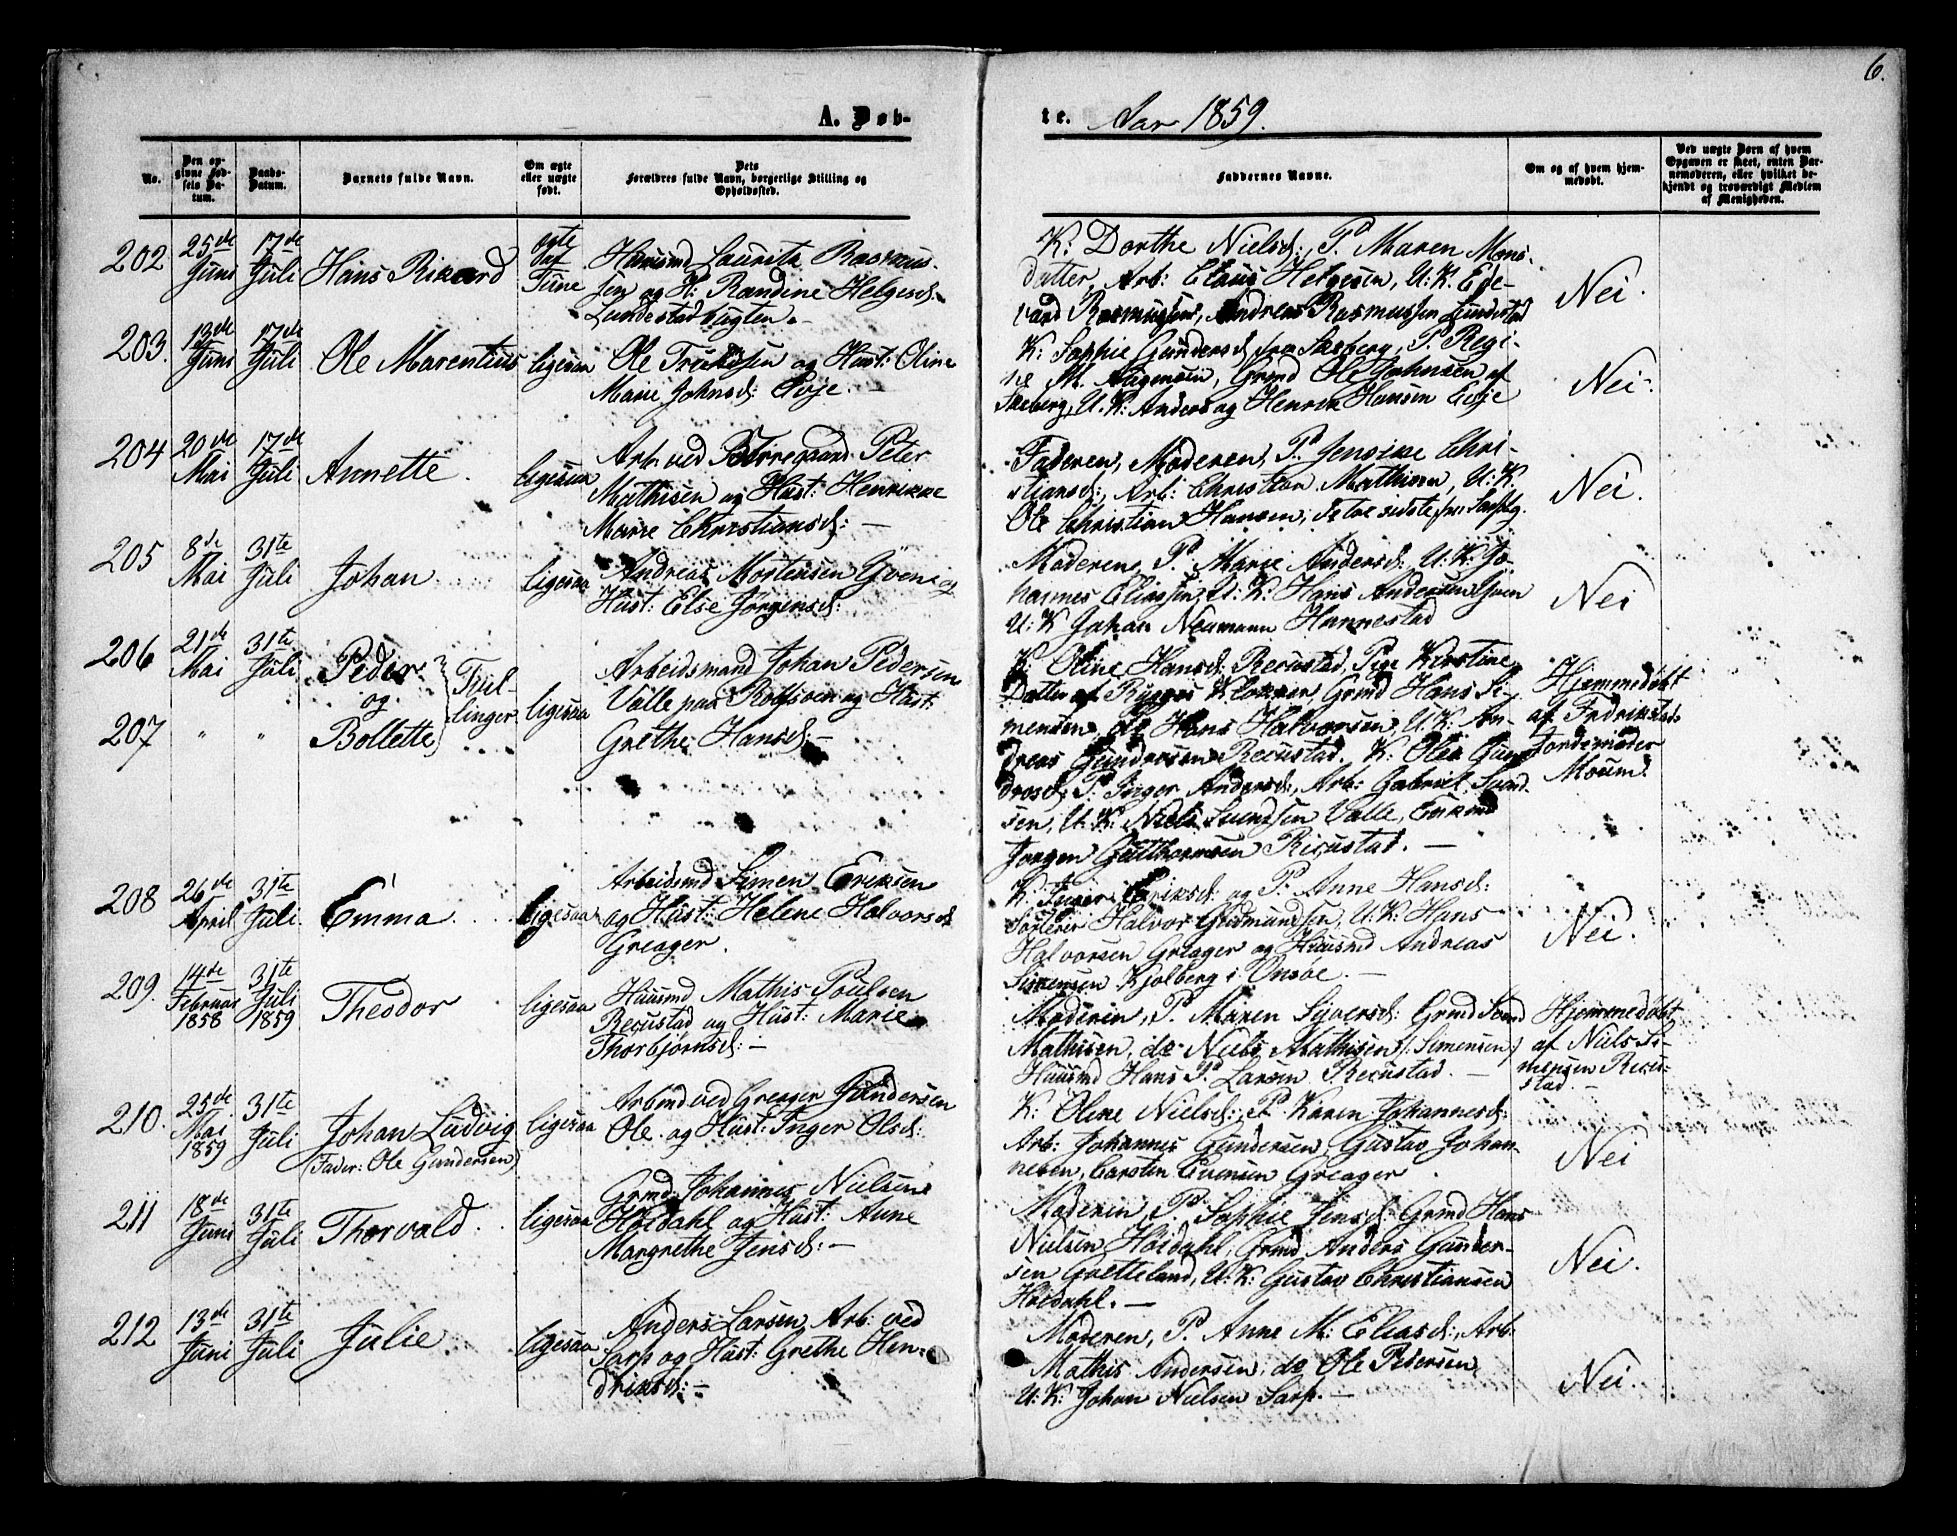 6.
A. Døb-
te. Aar 1859.
No.
Den op-
givne Fød-
sels Da-
tum.
Daabs-
Datum.
Barnets fulde Navn.
Om ægte
eller uægte
født.
Dets
Forældres fulde Navn, borgerlige Stilling og
Opholdssted.
Faddernes Navne.
Om og af hvem hjem-
medøbt.
Ved uægte Børn af hvem
Opgaven er skeet, enten Bar-
nemoderen, eller hvilket be-
kjendt og troværdigt Medlem
af Menigheden.
202 25de Juni 17de Juli Hans Rikard ægte af Tune
Huusmd Lauritz Rasmus-
sen og H: Randine Helgesd:
Lundestadbugten.
K: Dorthe Nielsd:, P. Maren Mons-
datter, Arb: Claus Helgesen, U: K. Ed-
vard Rasmussen, Andreas Rasmussen Lundestad
Nei.
203. 13de Juni 17de Juli Ole Marentius ligesaa
Ole Trulssen og Hust: Oline
Marie Johnsd: Evje. —
K: Sophie Gundersd: fra Sarsberg, P. Regi-
ne M. Aagensen, Grmd Ole Johnsen af
Skeberg, U. K: Anders og Henrik Hansen Evje
Nei.
204 20de Mai 17de Juli Annette. ligesaa
Arb. ved Borregaard Peter
Mathisen og Hust: Henrikke
Marie Christiansd: —
Faderen, Moderen, P. Jensine Chri-
stiansd:, Arb: Christian Mathisen, U: K.
Ole Christian Hansen, de to sidste fra Sarpsbg.
Nei.
205 8de Mai 31te Juli Johan ligesaa
Andreas Mortensen Gvene og
Hust: Else Jörgensd:
Moderen, P. Marie Andersd: U: K: Jo-
hannes Eliassen, U: K: Hans Andersen Gven
U: K Johan Neumann Hannestad
Nei
206 21de Mai 31te Juli Peder
og Tvil-
linger. ligesaa
207 " " Bollette
Arbeidsmand Johan Pedersen
Valle paa Rolfsöen og Hust:
Grethe Hansd: —
K. Oline Hansd: Recustad, Pige Kirstine
Datter af Rygges Klokker, Grmd Hans Si-
mensen, do Hans Halvorsen, U: K. An-
dreas Gundersen Recustad. K. Olea Gun-
dersd: P. Inger Andersd:, Arb: Gabriel Svend-
sen, U: K: Niels Svendsen Valle, Enkemd
Jorgen Gutthormsen Recustad. —
Hjemmedöbt
af Fredrikstads
Jordemoder
Moum.
208 26de April 31te Juli. Emma. ligesaa
Arbeidsmd Simen Eriksen
og Hust: Helene Halvorsd:
Greager.
K. Inger Eriksd: og P: Anne Hansd:
Sorterer Halvor Gudmundsen, U: K: Hans
Halvorsen Greager og Huusmd Andreas
Simensen Kjolberg i Onsöe. —
Nei.
209. 14de Februar 1858 31te Juli 1859 Theodor ligesaa
Huusmd Mathis Poulsen
Recustad og Hust: Marie
Thorbjörnsd: —
Moderen, P. Maren Syversd: Grmd Svend
Mathisen, do Niels Mathisen (: Simensen:)
Huusmd Hans P. Larsen Recustad. —
Hjemmedöbt
af Niels Si-
mensen Recu-
stad. —
210. 25de Mai 1859 31te Juli Johan Ludvig
(Fader: Ole Gundersen) ligesaa
Arbmd ved Greager Gundersen
Ole og Hust: Inger Olsd:
K: Oline Nielsd:, P. Karen Johannesd:
Arb: Johannes Gundersen, Gustav Johan-
nesen, Carsten Evensen Greager.
Nei
211 18de Juni 31te Juli Thorvald. ligesaa
Grmd: Johannes Nielsen
Höidahl og Hust: Anne
Margrethe Jensd: —
Moderen, P. Sophie Jensd: Grmd Hans
Nielsen Höidahl, Grmd Anders Gunder-
sen Gretteland, U: K: Gustav Christiansen
Höidahl. —
Nei.
212 13de Juni 31te Juli Julie. ligesaa
Anders Larsen Arb: ved
Sarp og Hust: Grethe Hen-
driksd: —
Moderen, P. Anne M: Eliasd:, Arb:
Mathis Andersen, do Ole Pedersen,
U: K: Johan Nielsen Sarp. —
Nei.